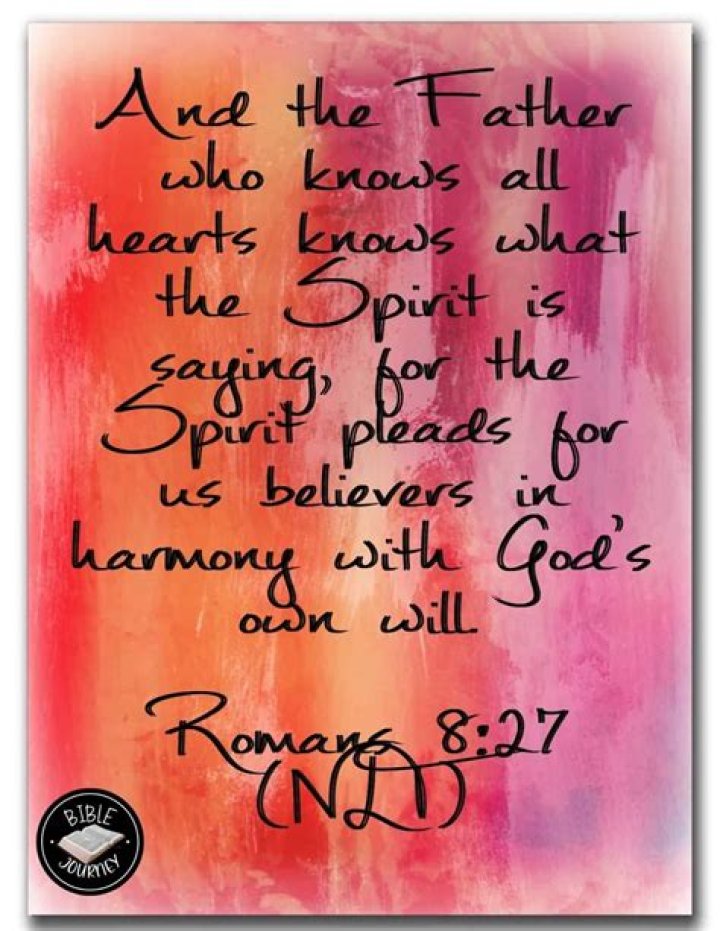 And the Father
who knows all
hearts knows what
the Spirit is
saying, for the
Spirit pleads for
us believers in
harmony with God's
own will.
Romans 8:27
(NLT)
BIBLE
JOURNEY